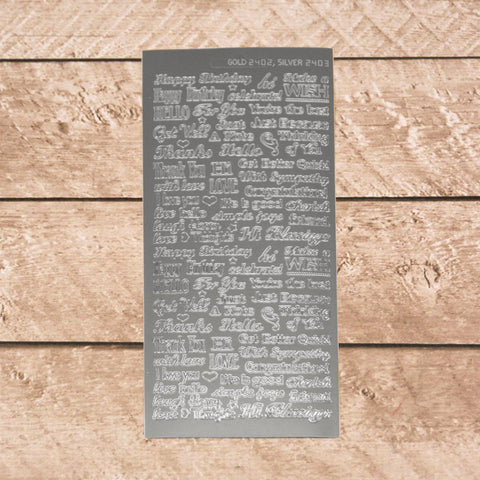 GOLD 2402, SILVER 2403
Happy Birthday let's Make a
Happy Birthday celebrate! WISH
HELLO For You You're the best
Get Well Just Just Because
A Note Thinking
Thanks Hello of You
Thank You Hi Get Better Quick!
with love LOVE With Sympathy
I love you Congratulations!
life is good Cherish
live simple joys friend
laugh
love
Happy Birthday let's Make a
Happy Birthday celebrate! WISH
HELLO For You You're the best
Get Well Just Just Because
A Note Thinking
Thanks Hello of You
Thank You Hi Get Better Quick!
with love LOVE With Sympathy
I love you Congratulations!
life is good Cherish
live simple joys
laugh
love